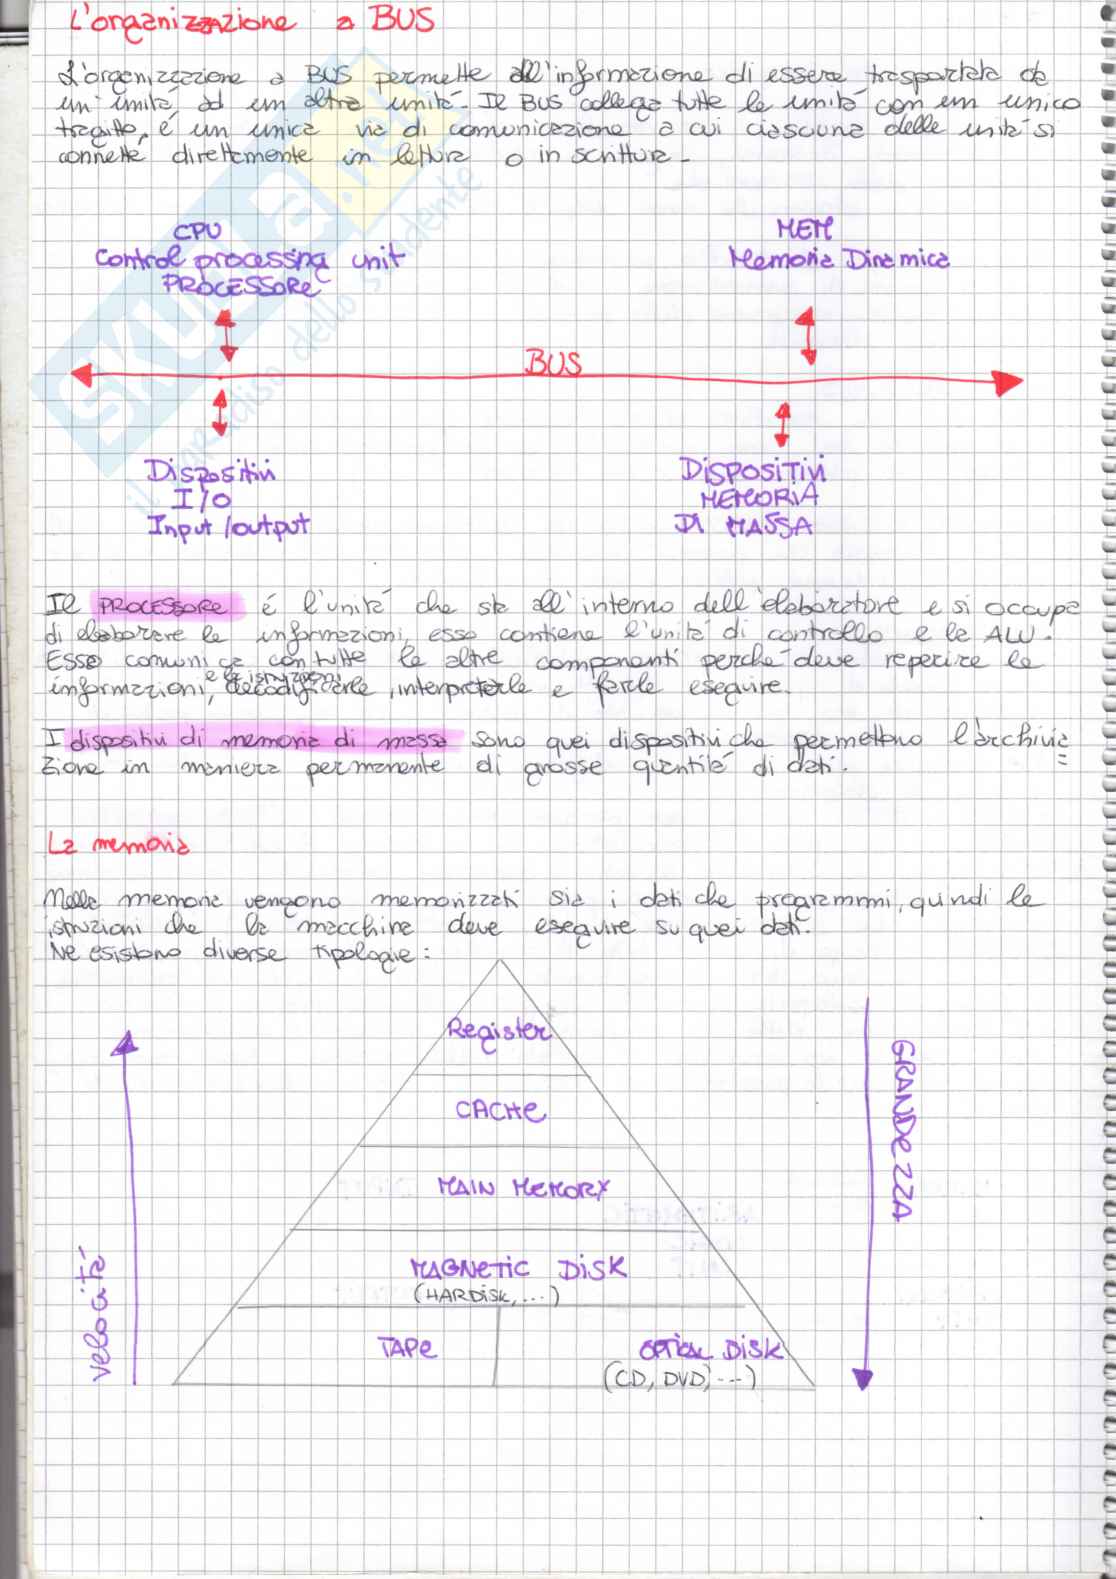 L'organizzazione a BUS
L'organizzazione a BUS permette all'informazione di essere trasportata da
un'unità ad un altra unità. Il BUS collega tutte le unità con un unico
tragitto, é un unica via di comunicazione a cui ciascuna delle unità si
connette direttamente in lettura o in scrittura.
CPU
Control processing unit
PROCESSORE
MEM
Memoria Dinamica
BUS
Dispositivi
I/O
Input/output
DISPOSITIVI
MEMORIA
DI MASSA
Il PROCESSORE é l'unità che sta all'interno dell'elaboratore e si occupa
di elaborare le informazioni, esso contiene l'unità di controllo e la ALU.
Esso comunica con tutte le altre componenti perché deve reperire le
informazioni, e le istruzioni decodificarle, interpretarle e farle eseguire.
I dispositivi di memoria di massa sono quei dispositivi che permettono l'archivia
zione in maniera permanente di grosse quantità di dati.
La memoria
Nella memoria vengono memorizzati sia i dati che programmi, quindi le
istruzioni che la macchina deve eseguire su quei dati.
Ne esistono diverse tipologie:
Register
CACHE
MAIN MEMORY
MAGNETIC DISK
(HARDISK, ...)
TAPE
OPTICAL DISK
(CD, DVD, ...)
velocità
GRANDEZZA
SKUOLA.net
il paradiso dello studente